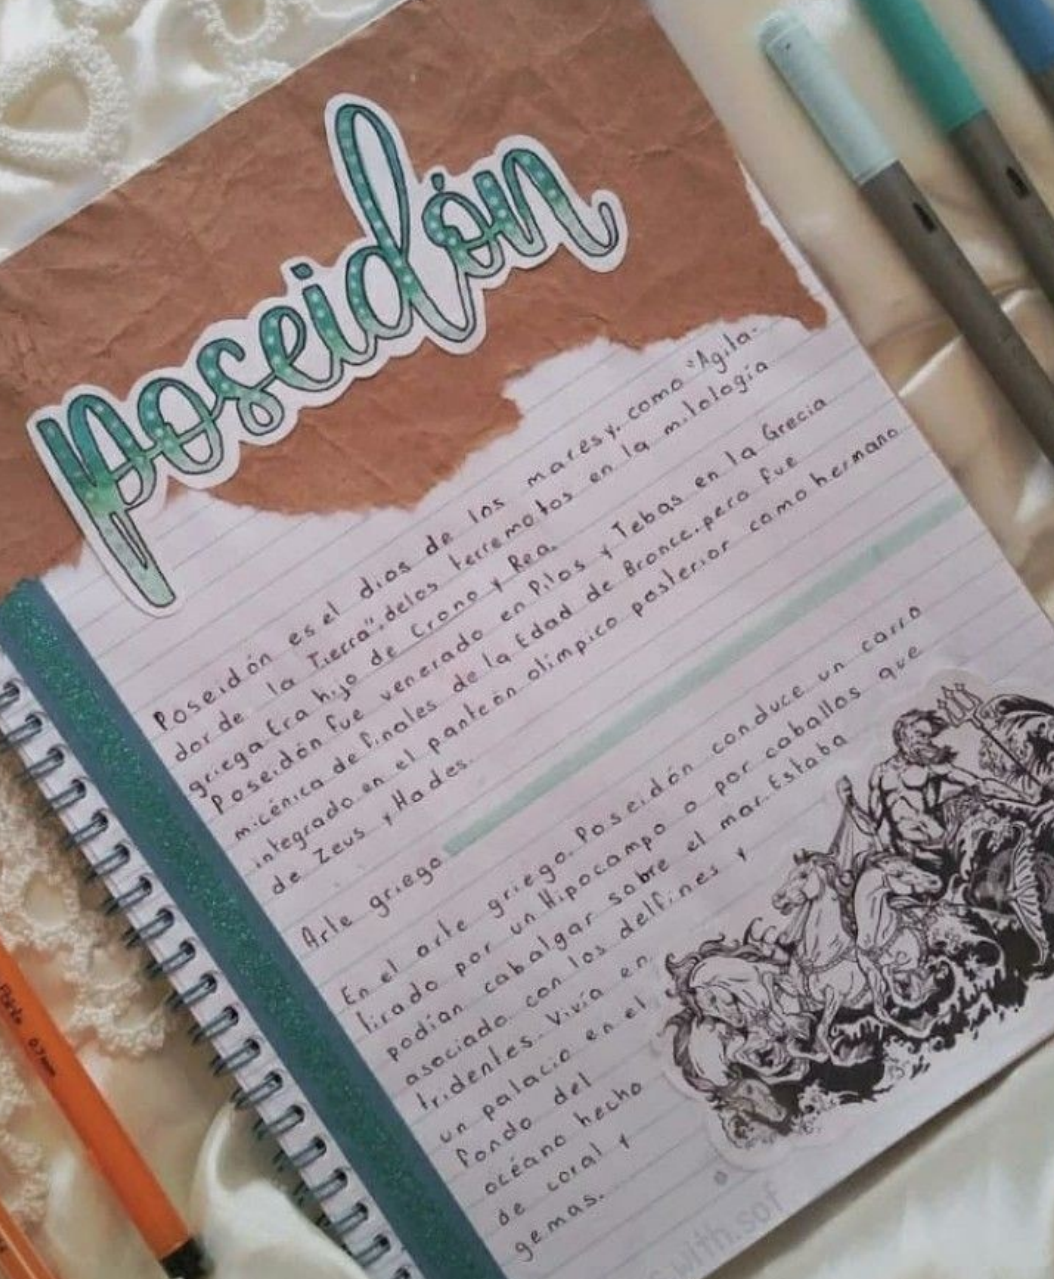 poseidón
Poseidón es el dios de los mares y, como "Agita-
dor de la Tierra", de los terremotos en la mitología
griega. Era hijo de Crono y Rea.
Poseidón fue venerado en Pilos y Tebas en la Grecia
micénica de finales de la Edad de Bronce, pero fue
integrado en el panteón olímpico posterior como hermano
de Zeus y Hades.
Arte griego
En el arte griego, Poseidón conduce un carro
tirado por un Hipocampo o por caballos que
podían cabalgar sobre el mar. Estaba
asociado con los delfines y
tridentes. Vivía en
un palacio en el
fondo del
océano hecho
de coral y
gemas.
with.sof
0.7mm